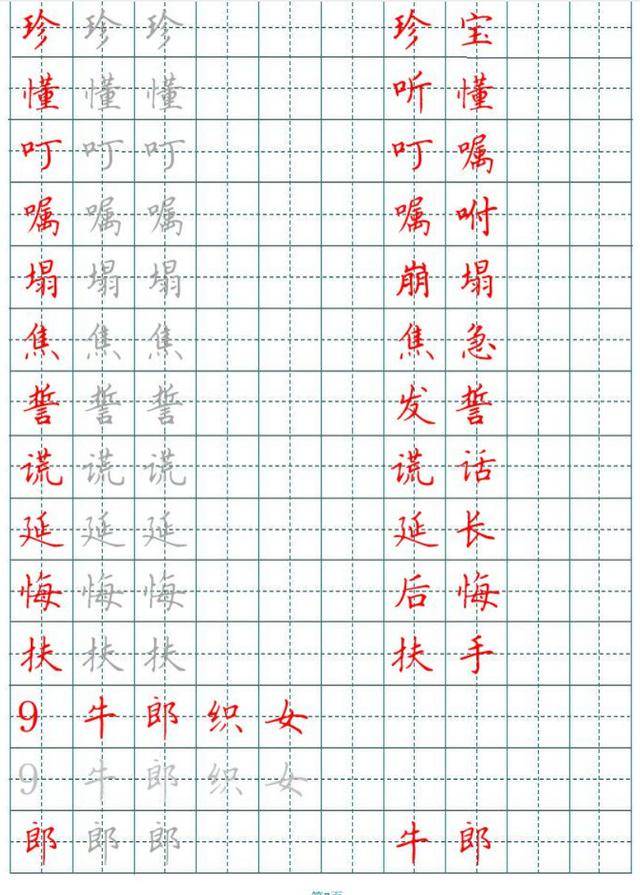 珍 珍 珍 珍 宝
懂 懂 懂 听 懂
叮 叮 叮 叮 嘱
嘱 嘱 嘱 嘱 咐
塌 塌 塌 崩 塌
焦 焦 焦 焦 急
誓 誓 誓 发 誓
谎 谎 谎 谎 话
延 延 延 延 长
悔 悔 悔 后 悔
扶 扶 扶 扶 手
9 牛 郎 织 女
9 牛 郎 织 女
郎 郎 郎 牛 郎